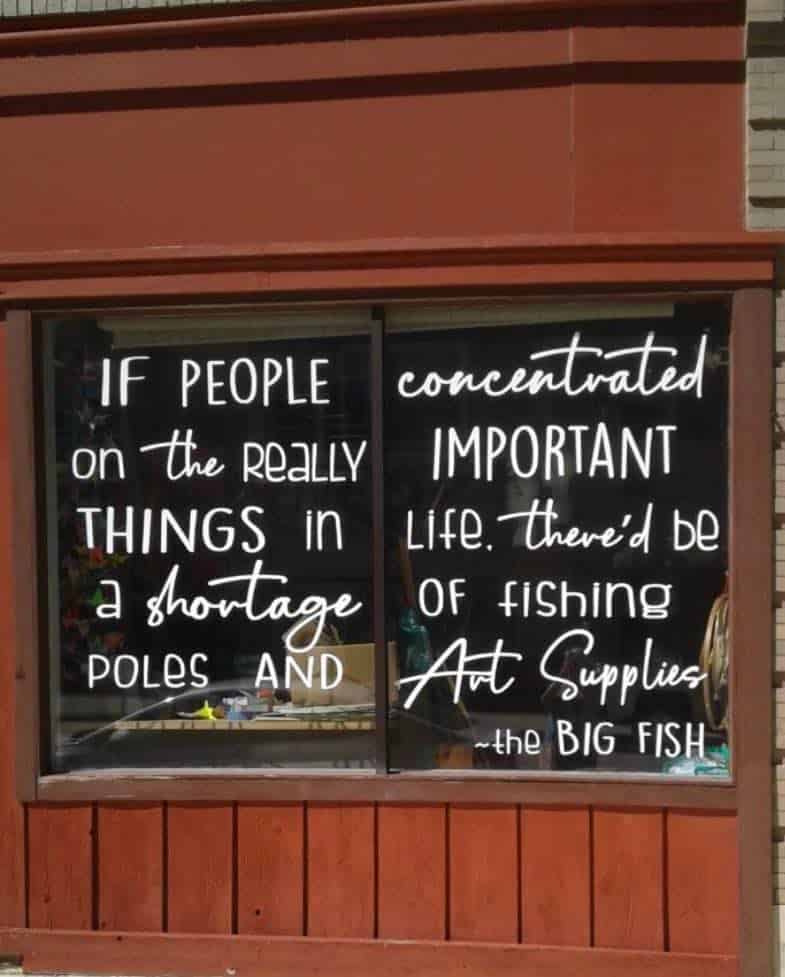 IF PEOPLE concentrated
on the Really IMPORTANT
THINGS in Life. there'd be
a shortage OF fishing
POLes AND Art Supplies
~the BIG FISH